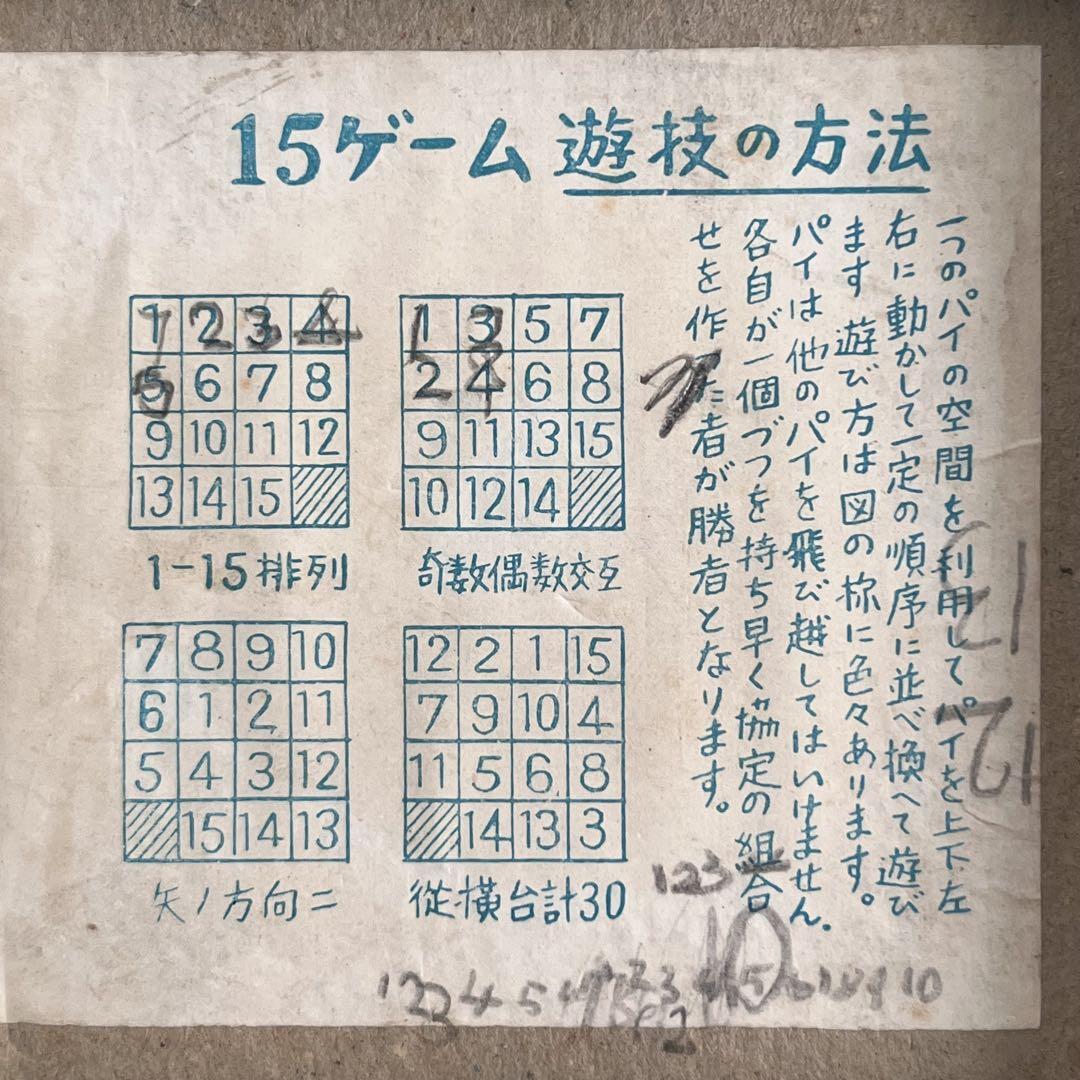 15ゲーム 遊技の方法
一つのパイの空間を利用してパイを上下左
右に動かして一定の順序に並べ換へて遊び
ます 遊び方は図の様に色々あります。
パイは他のパイを飛び越してはいけません.
各自が一個づつを持ち早く協定の組合
せを作った者が勝者となります。
1 2 3 4
5 6 7 8
9 10 11 12
13 14 15
1-15排列
1 3 5 7
2 4 6 8
9 11 13 15
10 12 14
奇数偶数交互
7 8 9 10
6 1 2 11
5 4 3 12
15 14 13
矢ノ方向ニ
12 2 1 15
7 9 10 4
11 5 6 8
14 13 3
從横台計30
123
12